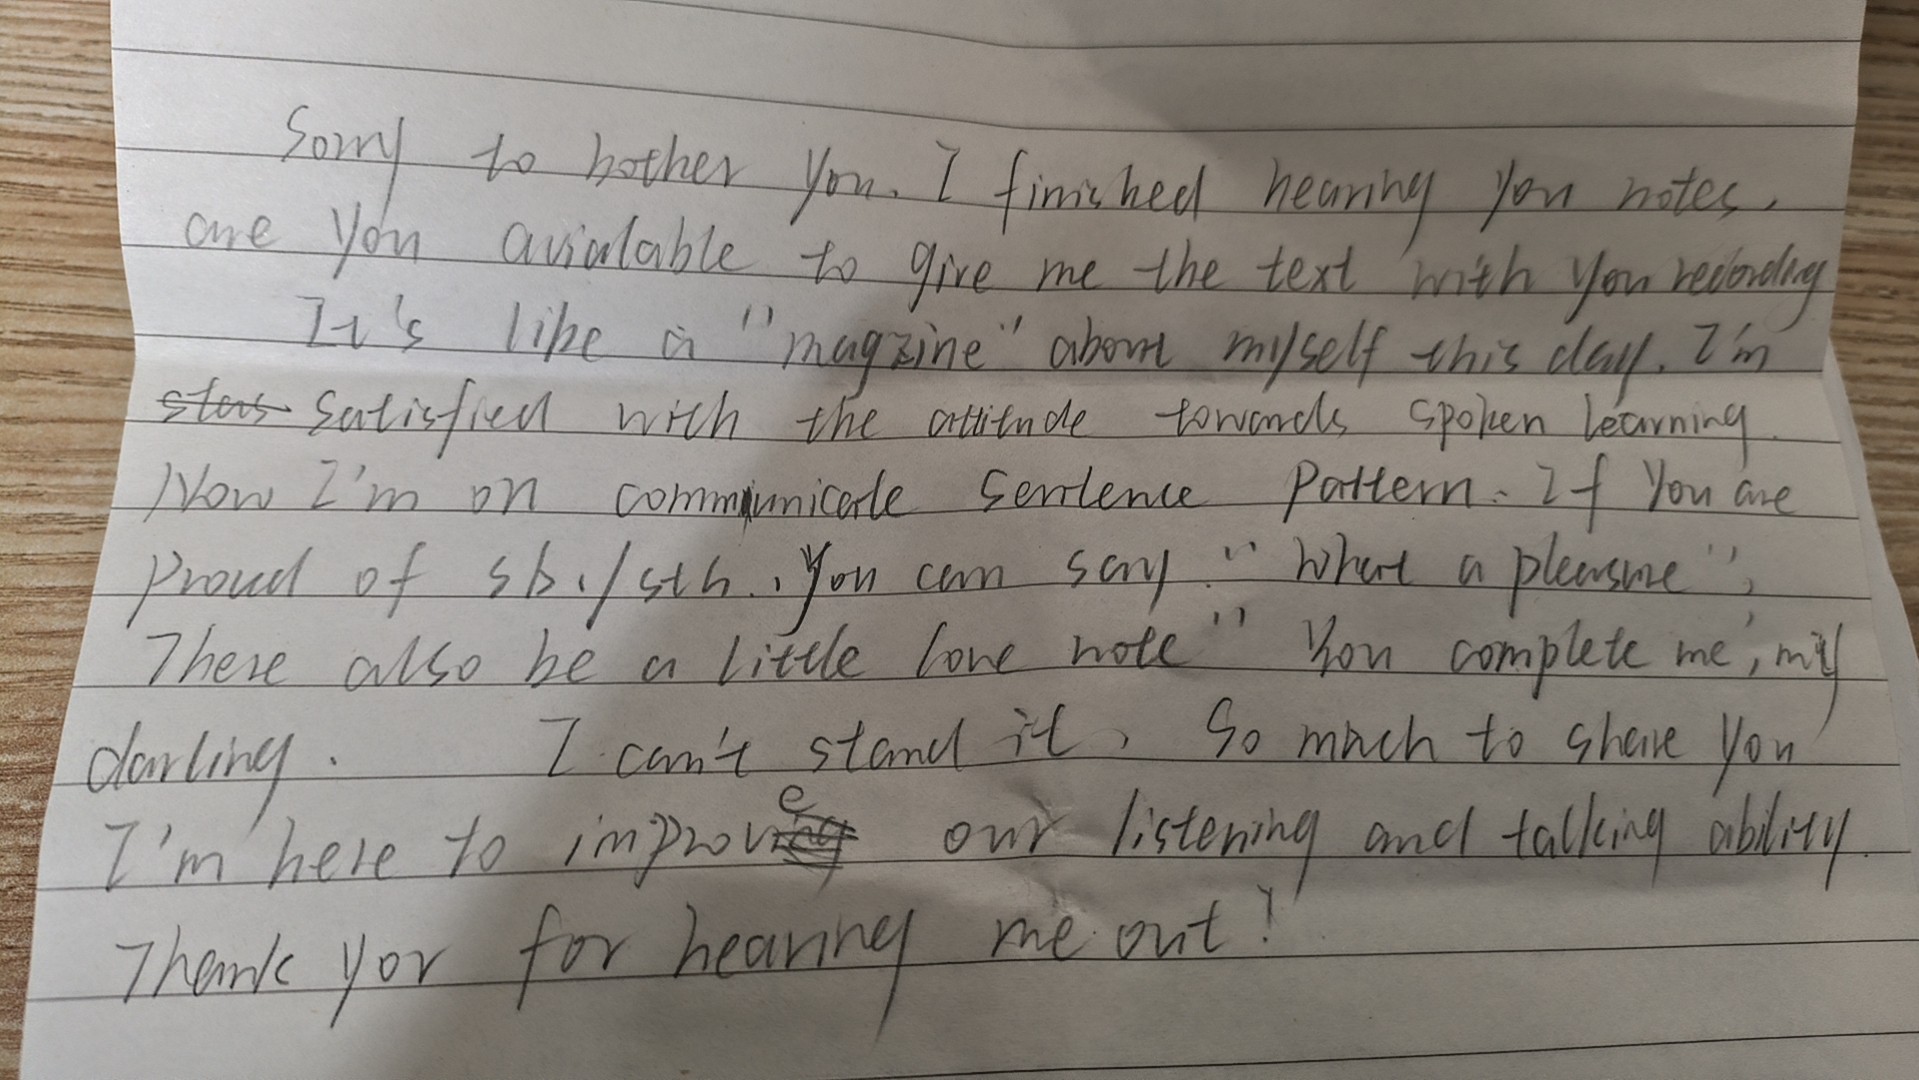 Sorry to bother you. I finished hearing you notes,
are you avialable to give me the text with you recording
It's like a "magzine" about myself this day. I'm
satisfied with the attitude towards spoken learning.
Now I'm on communicate sentence pattern. If you are
proud of sb./sth., you can say "What a pleasure",
There also be a little love note "You complete me", my
darling. I can't stand it, So much to share you
I'm here to improve our listening and talking ability.
Thank yor for hearing me out!